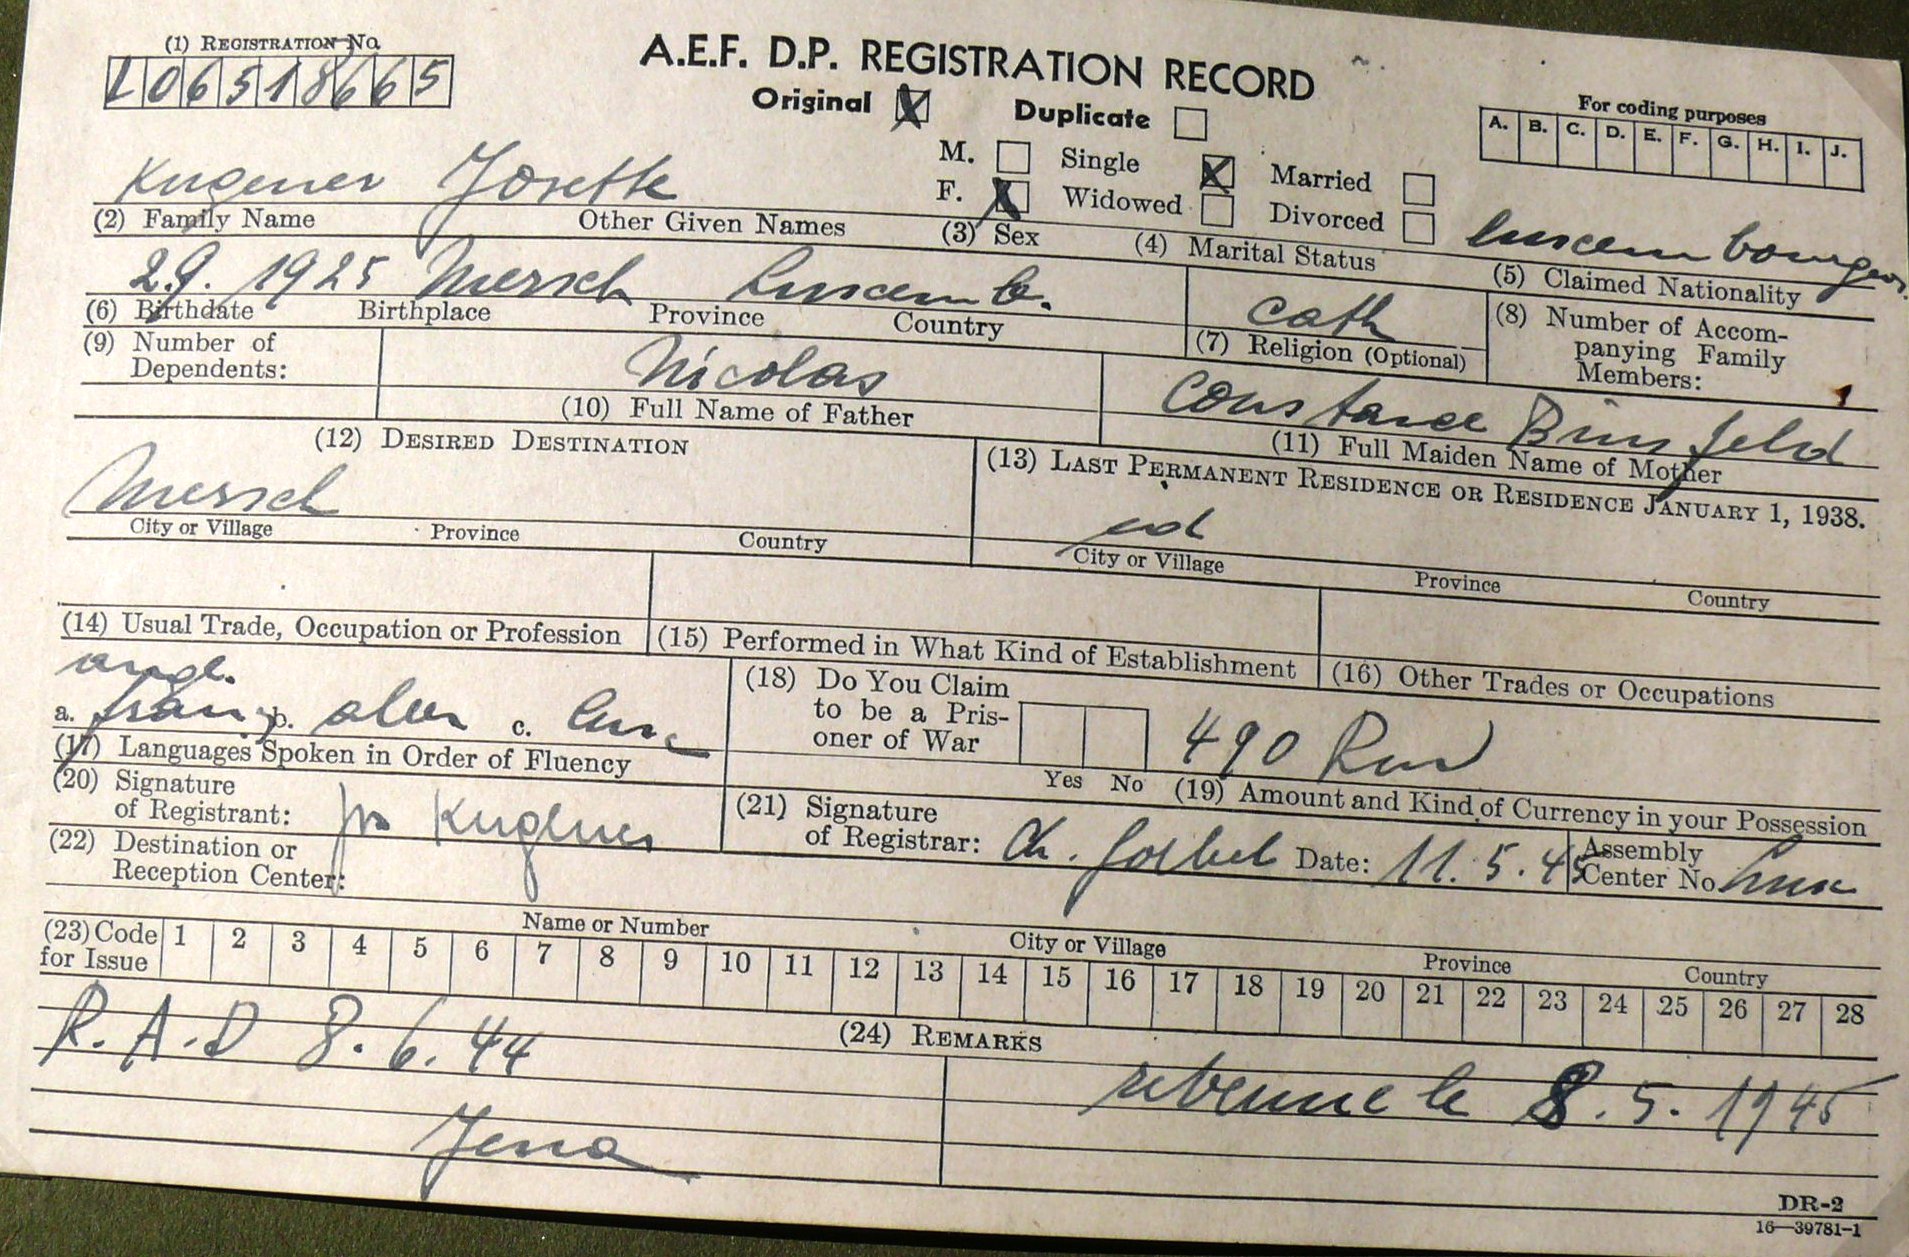 (1) REGISTRATION No.
L06518665
A.E.F. D.P. REGISTRATION RECORD
Original Duplicate
For coding purposes
A. B. C. D. E. F. G. H. I. J.
M. Single Married
F. Widowed Divorced
Kugener Josette
luxembourgeois
(2) Family Name Other Given Names (3) Sex (4) Marital Status (5) Claimed Nationality
1925 Mersch Luxemb. cath
(6) Birthdate Birthplace Province Country (7) Religion (Optional) (8) Number of Accompanying Family Members: 1
(9) Number of Dependents:
Nicolas
(10) Full Name of Father
Constance Binsfeld
(11) Full Maiden Name of Mother
(12) DESIRED DESTINATION
Mersch
City or Village Province Country
(13) LAST PERMANENT RESIDENCE OR RESIDENCE JANUARY 1, 1938.
id
City or Village Province Country
(14) Usual Trade, Occupation or Profession (15) Performed in What Kind of Establishment (16) Other Trades or Occupations
angl.
a. franç b. c. lux
(17) Languages Spoken in Order of Fluency
(18) Do You Claim to be a Prisoner of War
Yes No
490
(19) Amount and Kind of Currency in your Possession
(20) Signature of Registrant: Jos Kugener
(21) Signature of Registrar: Date: 11.5.45 Assembly Center No Lux
(22) Destination or Reception Center:
Name or Number City or Village Province Country
(23) Code for Issue 1 2 3 4 5 6 7 8 9 10 11 12 13 14 15 16 17 18 19 20 21 22 23 24 25 26 27 28
(24) REMARKS
R.A.D 8.6.44
Jena
revenue le 8.5.1945
DR-2
16—39781-1